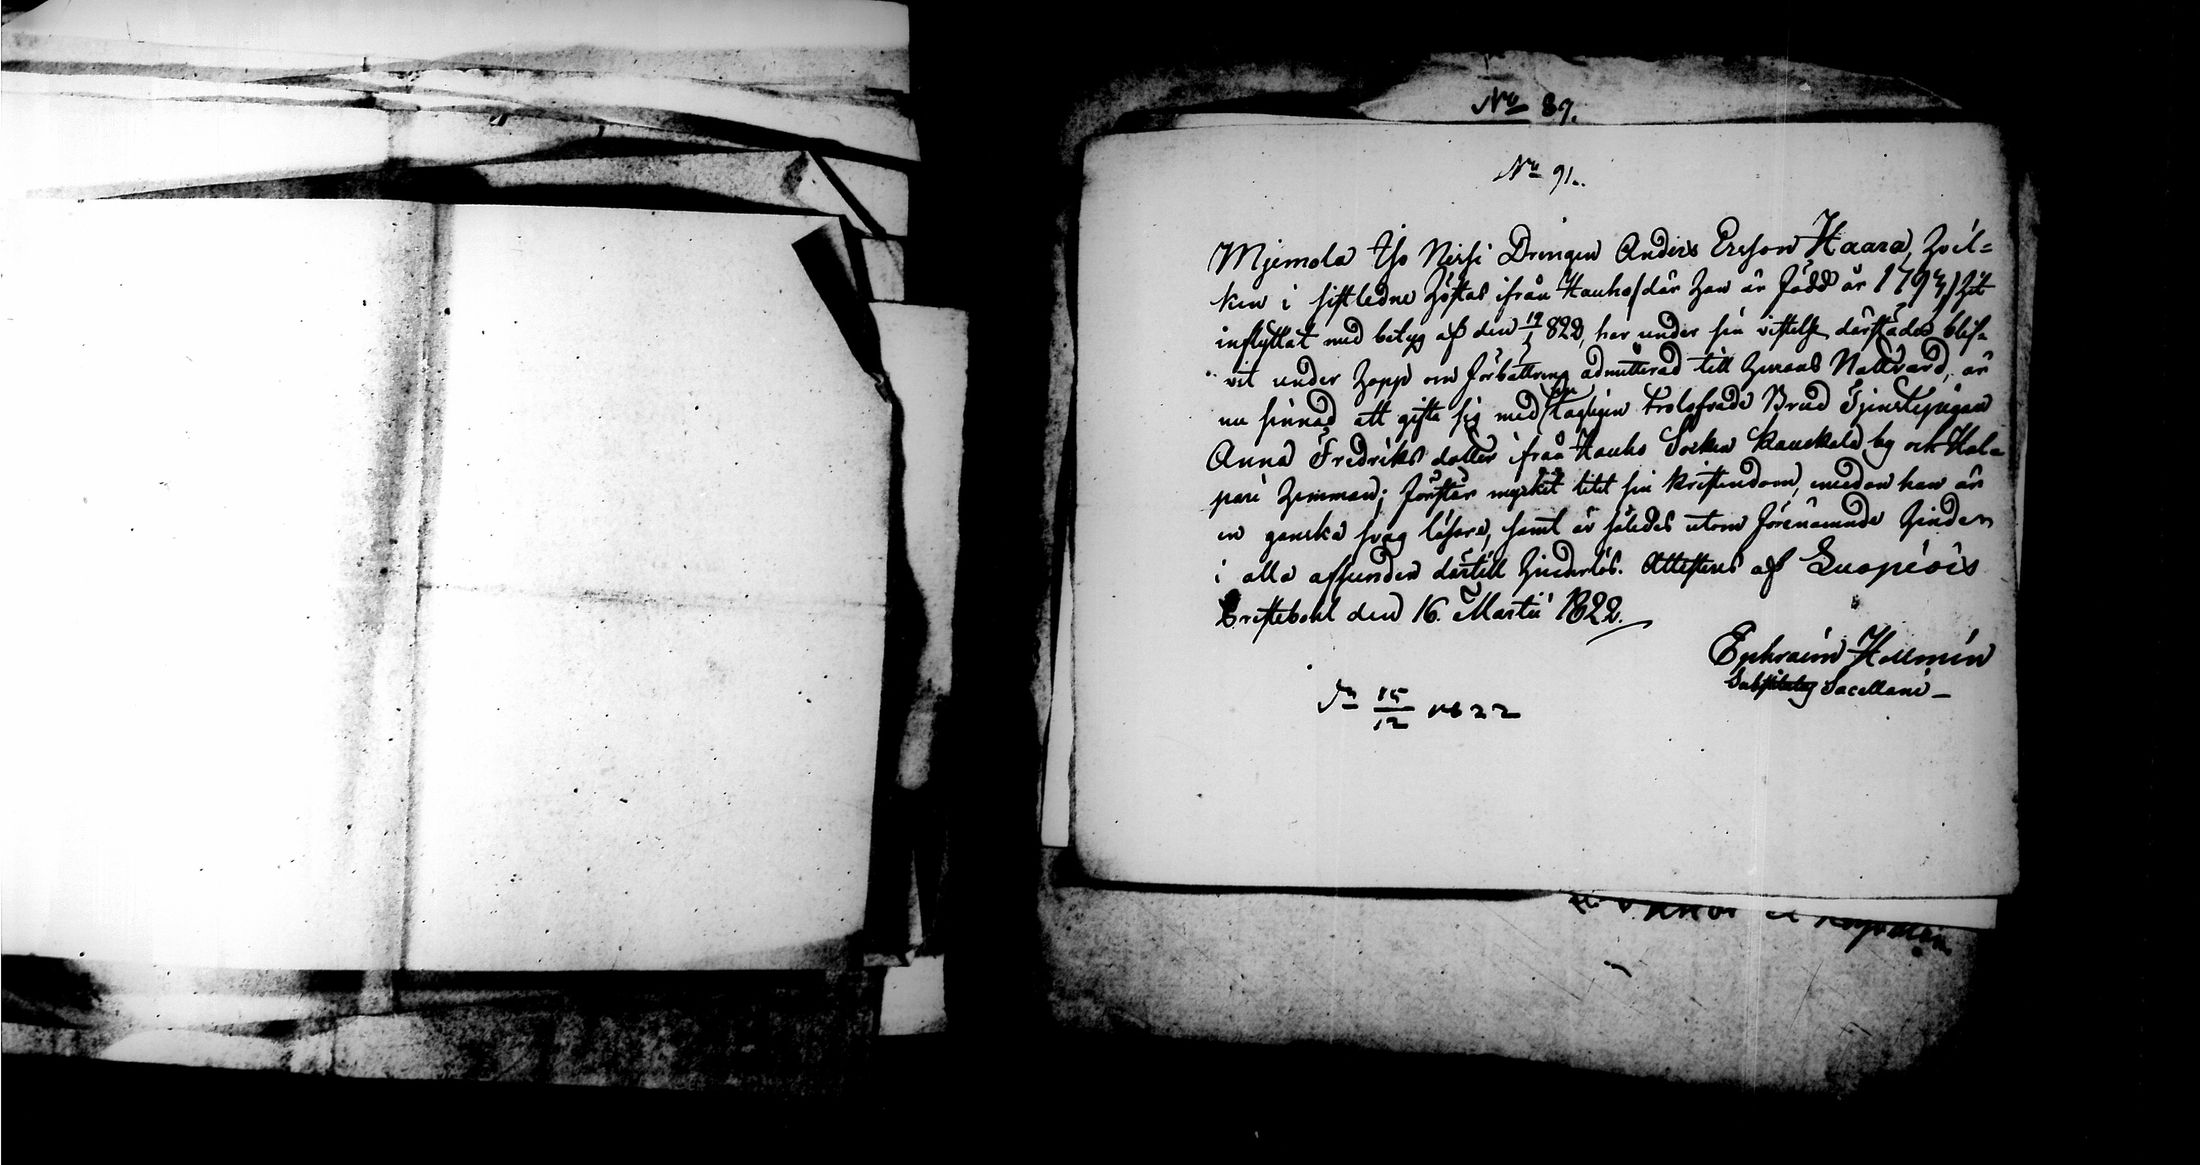 No 89.
No 91.
Mjemola Iso Nirsi Drengen Anders Ersson Haara, hvil-
ken i sistledne höstas ifrån Hauho (där han är född år 1797) hit
inflyttat med betyg af den 19/ 820, har under sin vistelse därstädes blif-
vit under hopp om förbättring admitterad till Herrans Nattvard, är
nu sinnad att gifta sig med lagligen trolofvade Brud Tjenstepigan
Anna Fredriks dotter ifrån Hauho Socken by och
hemman; förstår mycket litet sin kristendom, medan han är
en ganska svag läsare, samt är således utom förenämnde hinder
i alla afseenden därtill hinderlös. Attesteras af Luopiois
Prestebohl den 16. Martii 1822.
Ephraim Hellmén
Sacellani
15/12 1822